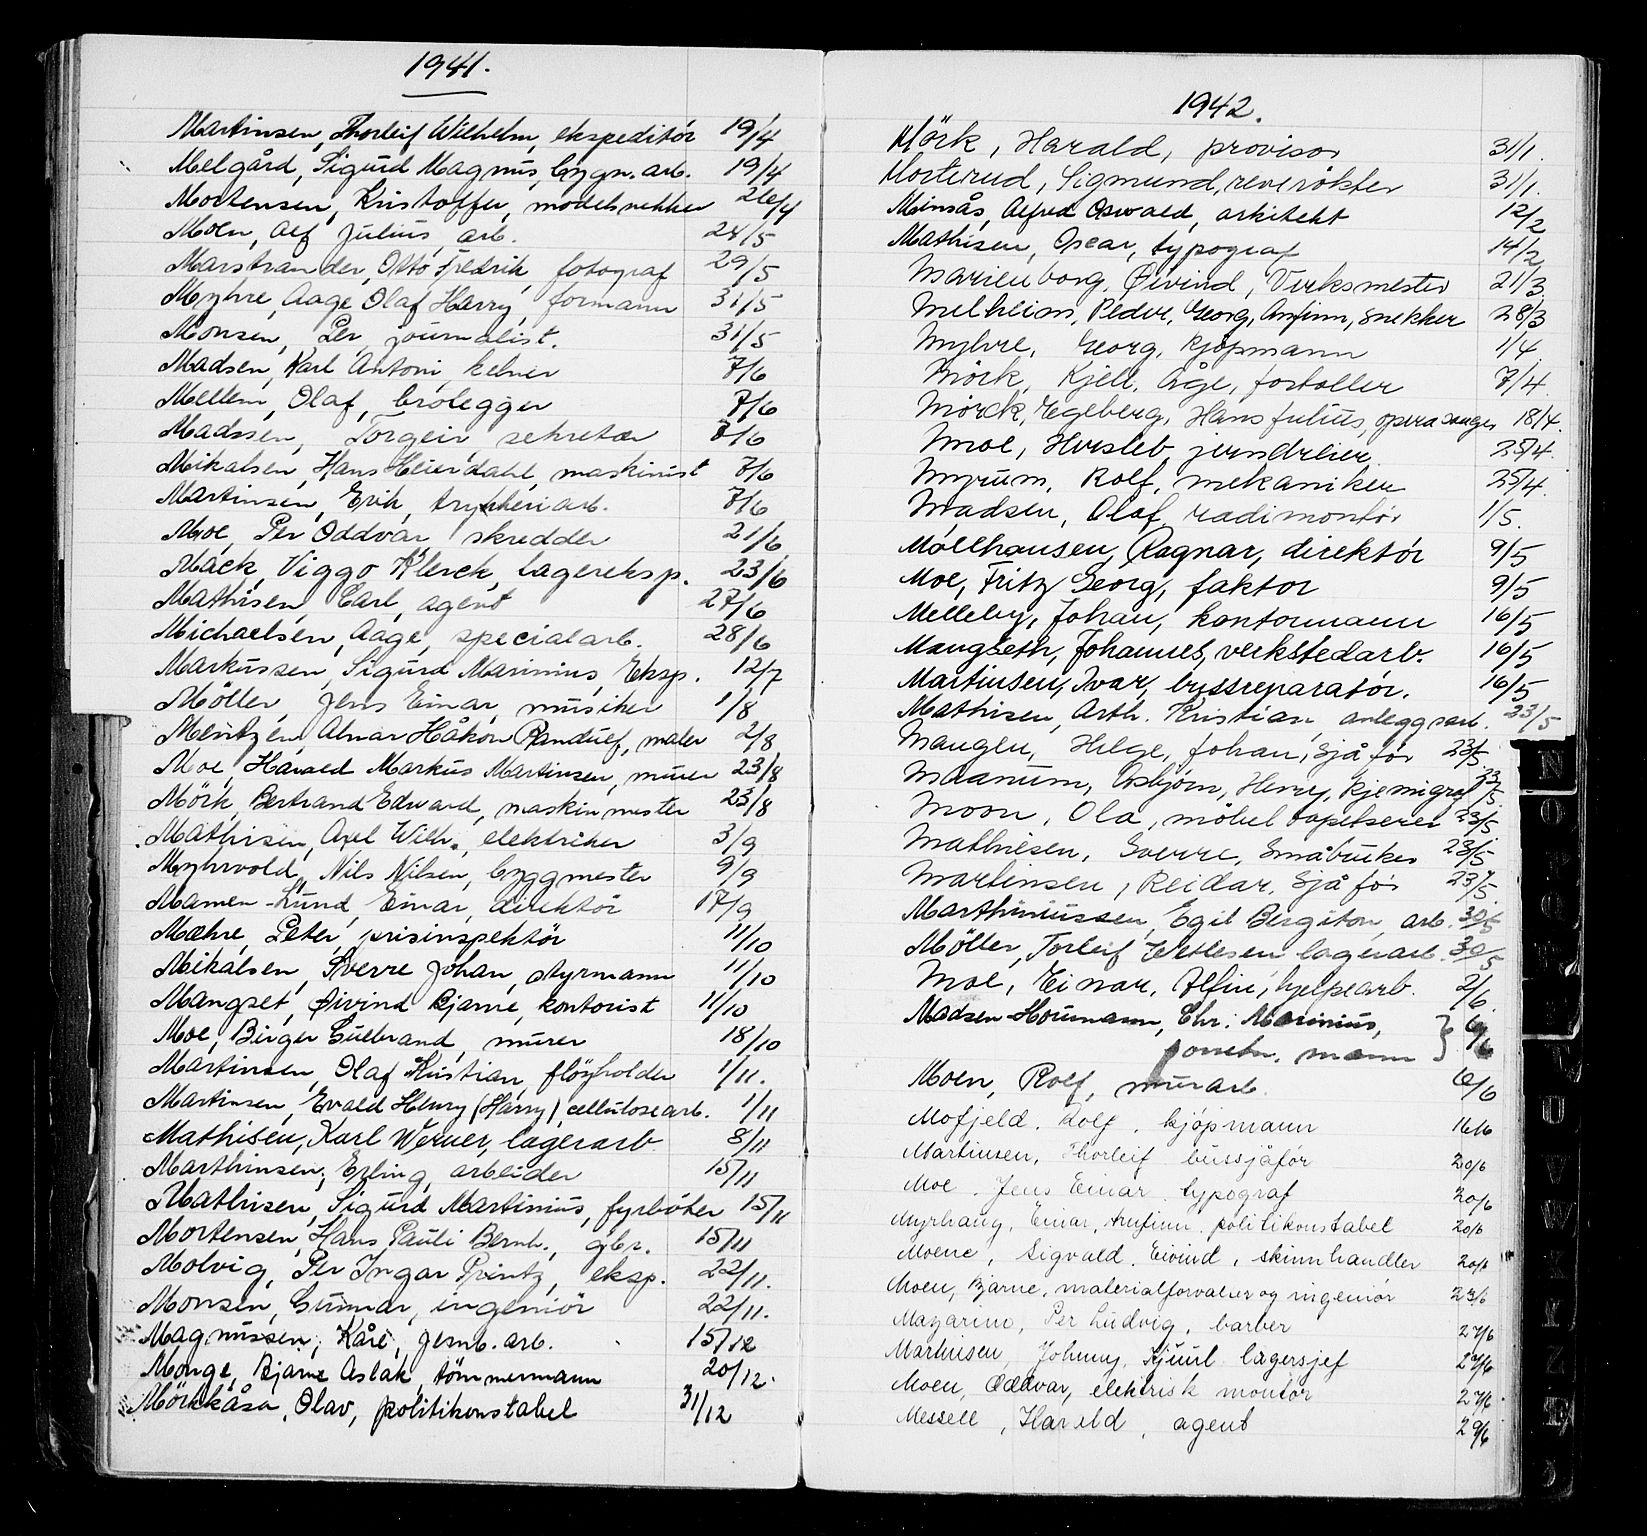 1941.
Martinsen, Thorleif Wilhelm, ekspeditör 19/4
Melgård, Sigurd Magnus, bygn. arb. 19/4
Mortensen, Kristoffer, modelsnekker 26/4
Moen, Alf Julius, arb. 24/5
Marstrander, Otto Fredrik, fotograf 29/5
Myhre, Aage Olaf Harry, formann 31/5
Monsen, Per, journalist. 31/5
Madsen, Karl Antoni, kelner 7/6
Mellem, Olaf, brolegger 7/6
Madssen, Torgeir, sekretær 7/6
Mikalsen, Hans Heierdahl, maskinist 7/6
Martinsen, Erik, trykkeriarb. 7/6
Moe, Per Oddvar, skredder 21/6
Mack, Viggo Klerck, lagereksp. 23/6
Mathisen, Carl, agent 27/6
Michaelsen, Aage, specialarb. 28/6
Markussen, Sigurd Marinius, Eksp. 12/7
Möller, Jens Einar, musiker 1/8
Mentzen, Alnar Håkon Randulf, maler 2/8
Moe, Harald Markus Martinsen, murer 23/8
Mörk, Bertrand Edward, maskinmester 23/8
Mathisen, Axel Wilh., elektriker 3/9
Myhrvold, Nils Nilsen, byggmester 9/9
Mamen-Lund, Einar, direktör 17/9
Mæhre, Peter, prisinspektör 11/10
Mikalsen, Sverre Johan, styrmann 11/10
Mangset, Øivind Bjarne, kontorist 11/10
Moe, Birger Gulbrand, murer 18/10
Martinsen, Olaf Kristian, flöyholder 1/11.
Martinsen, Evald Henry (Harry) cellulosearb. 1/11
Mathisen, Karl Werner, lagerarb. 8/11
Marthinsen, Erling, arbeider 15/11
Mathisen, Sigurd Martinius, fyrböter 15/11
Mortensen, Hans Pauli Bernh., gbr. 15/11
Molvig, Per Ingar Printz, eksp. 22/11.
Monsen, Gunnar, ingeniör 22/11.
Magnussen, Kåre, jernb. arb. 15/12
Monge, Bjarne Aslak, tömmermann 20/12.
Mörkkåsa, Olav, politikonstabel 31/12
1942.
Mörk, Harald, provisor 31/1.
Morterud, Sigmund, reverökter 31/1.
Minsås, Alfred Oswald, arkitekt 12/2
Mathisen, Oscar, typograf 14/2
Marienborg, Øivind, Verksmester 21/3
Melheim, Peder, Georg, Anfinn, snekker 28/3
Myhre, Georg, kjöpmann 1/4.
Mörk, Kjell, Åge, forstoller 7/4.
Mörck, Egeberg, Hans Julius, opera sanger 18/4.
Moe, Hersleb, jerndreier 25/4.
Myrum, Rolf, mekaniker 25/4.
Madsen, Olaf, radimontör 1/5.
Möllhausen, Ragnar, direktör 9/5
Moe, Fritz Georg, faktor 9/5
Melleby, Johan, kontormann 16/5
Mangseth, Johannes, verkstedarb. 16/5
Martinsen, Ivar, bussreparatör. 16/5
Mathisen, Arth. Kristian, anleggsarb. 23/5
Maugen, Helge, Johan, Sjåför 23/5.
Maanum, Asbjörn, Henry, Kjemigraf 23/5.
Moon, Ola, möbel tapetserer 23/5.
Mathiesen, Sverre, Småbruker 23/5
Martensen, Reidar, Sjåför 23/5
Marthiniussen, Egil Bergiton, arb. 30/5
Möller, Torleif Ketlesen lagerarb. 30/5
Moe, Einar, Alfin, hjelpearb. 2/6
Madsen-Houmann, Chr. Marinius, } 6/6
forretn. mann
Moen, Rolf, murarb. 6/6
Mofjeld, Rolf, kjöpmann 16/6
Martinsen, Thorleif bussjåför 20/6
Moe, Jens Einar, typograf 20/6
Myrhaug, Einar, Arnfinn, politikonstabel 20/6
Moene, Sigvald, Eivind, skinnhandler 20/6
Moen, Bjarne, materialforvalter og ingeniör 23/6
Mazarino, Per Ludvig, barber 27/6
Mathisen, Johnny, Kjuul lagersjef 27/6
Moen, Oddvar, elektrisk montör 27/6
Messell, Harald, agent 29/6
N
O
P